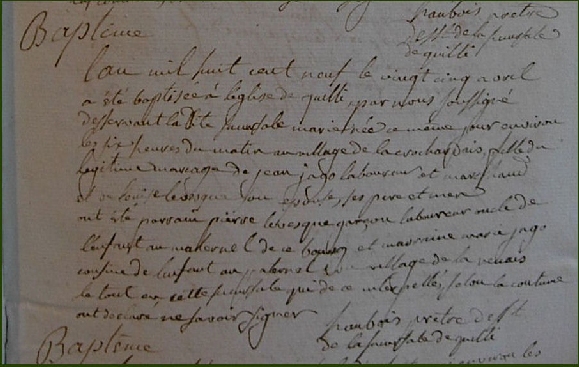 Baptême
paubois prêtre
dess.t de la succursale
de quilli
l'an mil huit cent neuf le vingt cinq avril
a été baptisée à l'église de quilli par nous soussigné
desservant la dite succursale marie née ce même jour environ
les six heures du matin au village de la crochardais fille du
légitime mariage de jean jago laboureur et marchand
et de louise levesque son épouse ses pere et mere
ont été parrain pierre levesque garçon laboureur oncle de
l'enfant au maternel de ce bourg et marraine marie jago
cousine de l'enfant au paternel du village de la
le tout en cette succursale qui de ce interpellés selon la coutume
ont déclaré ne savoir signer
paubois prêtre dess.t
de la succursale de quilli
Baptême
environ les